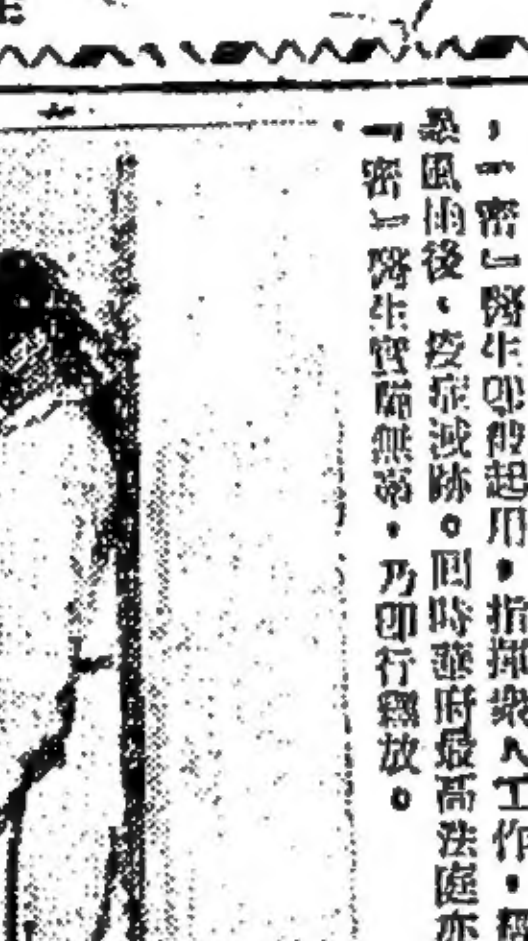 ，「密」醫生即被起用，指揮衆人工作，
暴風雨後，疫症滅跡。同時華府最高法庭亦
「密」醫生實屬無辜，乃即行釋放。